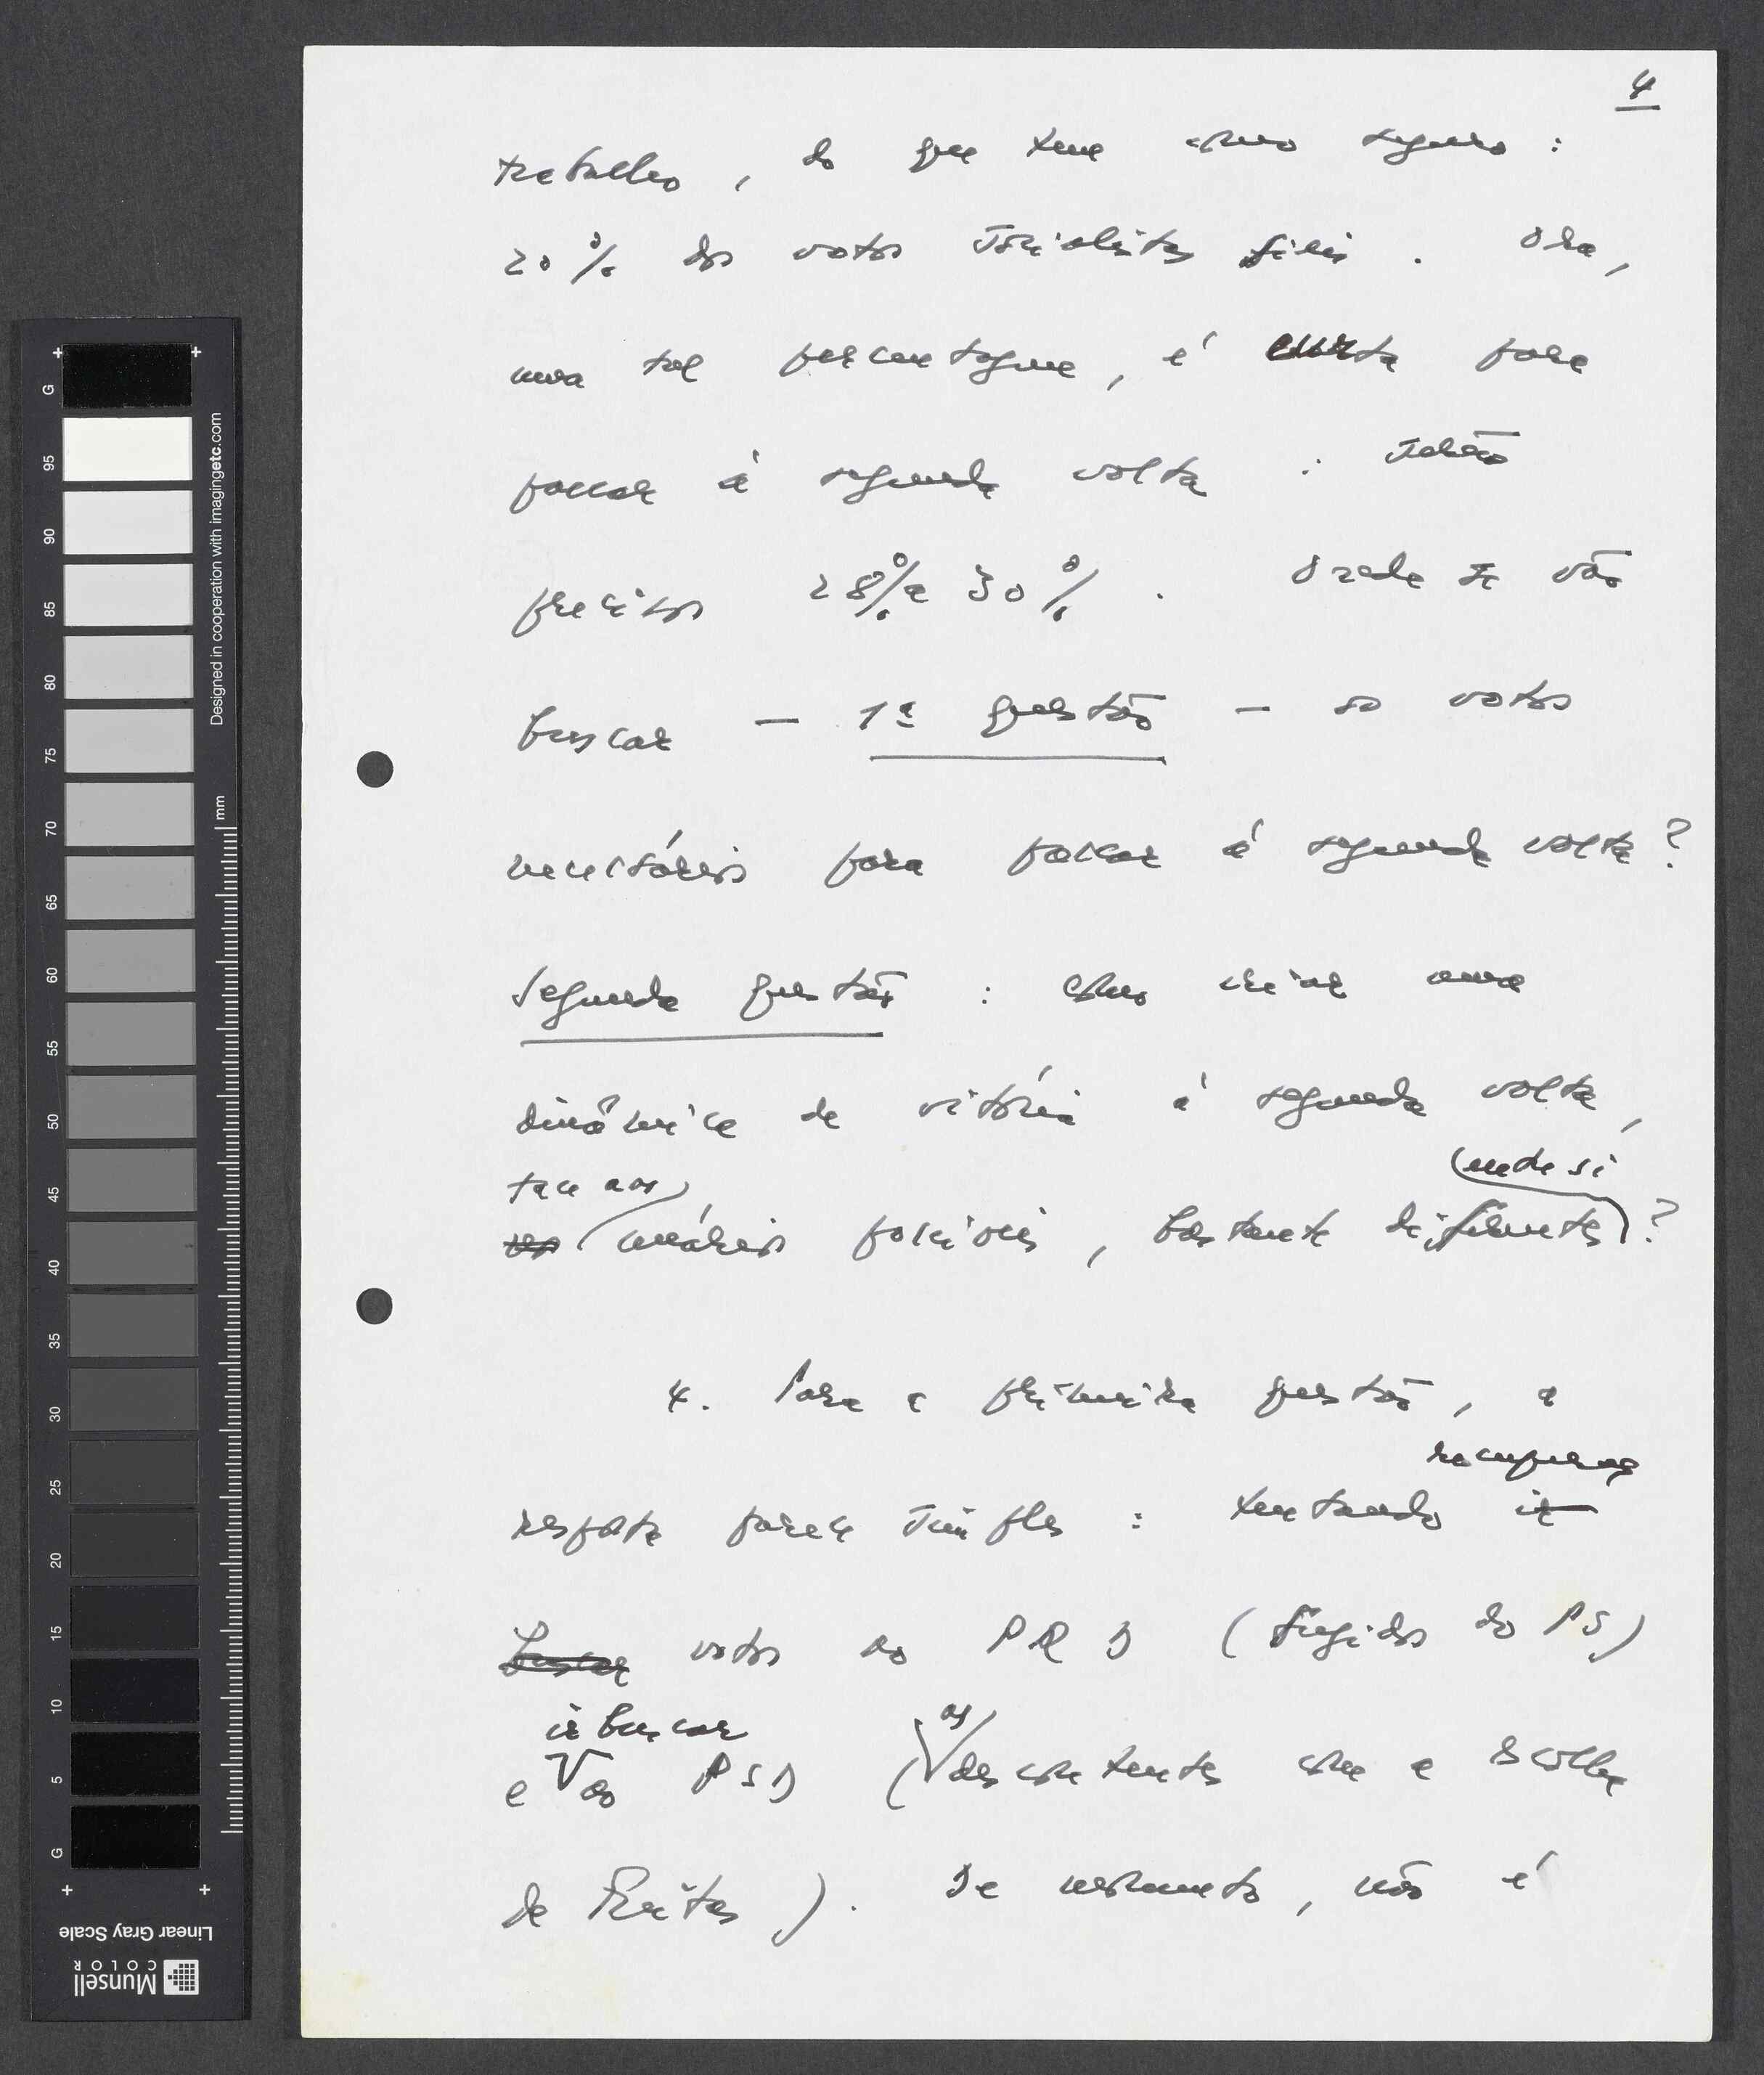 4
trabalho, do que tem como seguro:
20% dos votos socialistas fiéis. Ora,
uma tal percentagem, é curta para
passar à segunda volta: serão
precisos 28% a 30%. Onde se vão
buscar — 1ª questão — os votos
necessários para passar à segunda volta?
Segunda questão: como criar uma
dinâmica de vitória à segunda volta,
face aos (entre si
cenários possíveis, bastante diferentes)?
4. Para a primeira questão, a
recuperar
resposta parece simples: tentando ir
buscar votos ao PRD (fugidos do PS)
ir buscar os
e ao PSD (descontentes com a escolha
de Freitas). De momento, não é
G 95 90 85 80 75 70 65 60 55 50 45 40 35 30 25 20 15 10 5 G
mm
Designed in cooperation with imagingetc.com
Linear Gray Scale
Munsell
COLOR